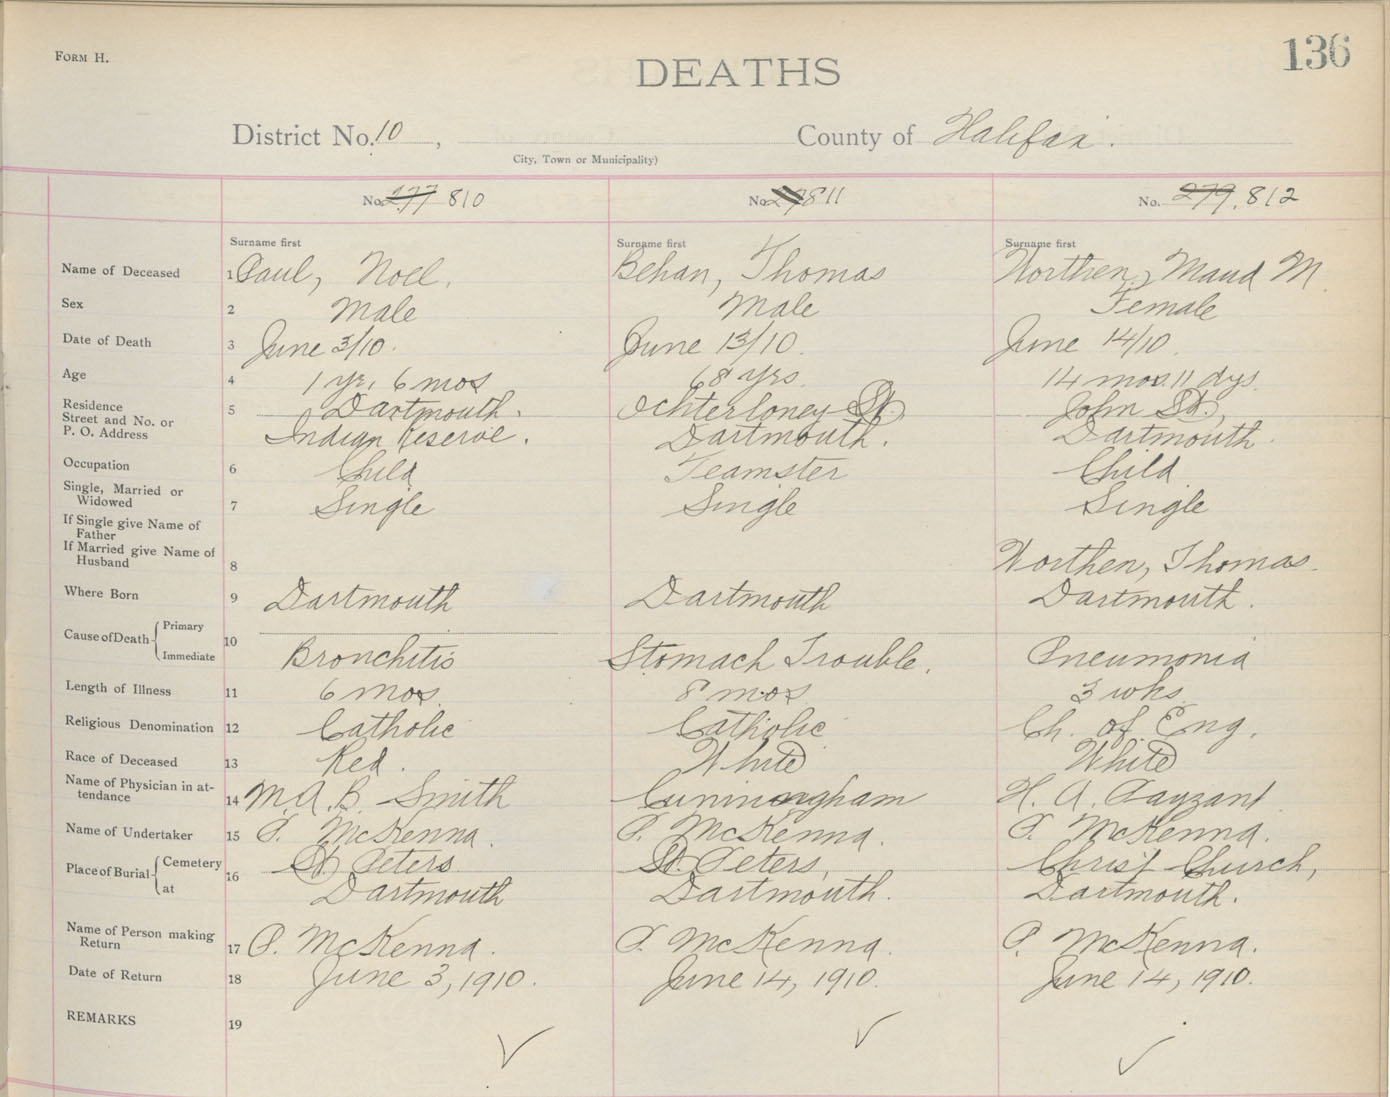 FORM H.
136
DEATHS
District No. 10, County of Halifax.
City, Town or Municipality)
No. 277 810 No. 811 No. 279. 812
Surname first Surname first Surname first
Name of Deceased 1 Paul, Noel. Behan, Thomas Worthen, Maud M.
Sex 2 Male Male Female
Date of Death 3 June 3/10. June 13/10. June 14/10.
Age 4 1 yr. 6 mos 68 yrs. 14 mos. 11 dys.
Residence Dartmouth. Ochterloney St. John St.,
Street and No. or 5
P. O. Address Indian Reserve. Dartmouth. Dartmouth.
Occupation 6 Child Teamster Child
Single, Married or
Widowed 7 Single Single Single
If Single give Name of
Father
If Married give Name of
Husband 8 Worthen, Thomas.
Where Born 9 Dartmouth Dartmouth Dartmouth.
Cause of Death Primary
10
Immediate Bronchitis Stomach Trouble. Pneumonia
Length of Illness 11 6 mos. 8 mos 3 wks.
Religious Denomination 12 Catholic Catholic Ch. of Eng.
Race of Deceased 13 Red. White White
Name of Physician in at-
tendance 14 M. A. B. Smith Cunningham H. A. Payzant
Name of Undertaker 15 P. McKenna. P. McKenna. P. McKenna.
Place of Burial Cemetery St. Peters St. Peters, Christ Church,
16
at Dartmouth Dartmouth. Dartmouth.
Name of Person making
Return 17 P. McKenna. P. McKenna. P. McKenna.
Date of Return 18 June 3, 1910. June 14, 1910. June 14, 1910.
REMARKS 19